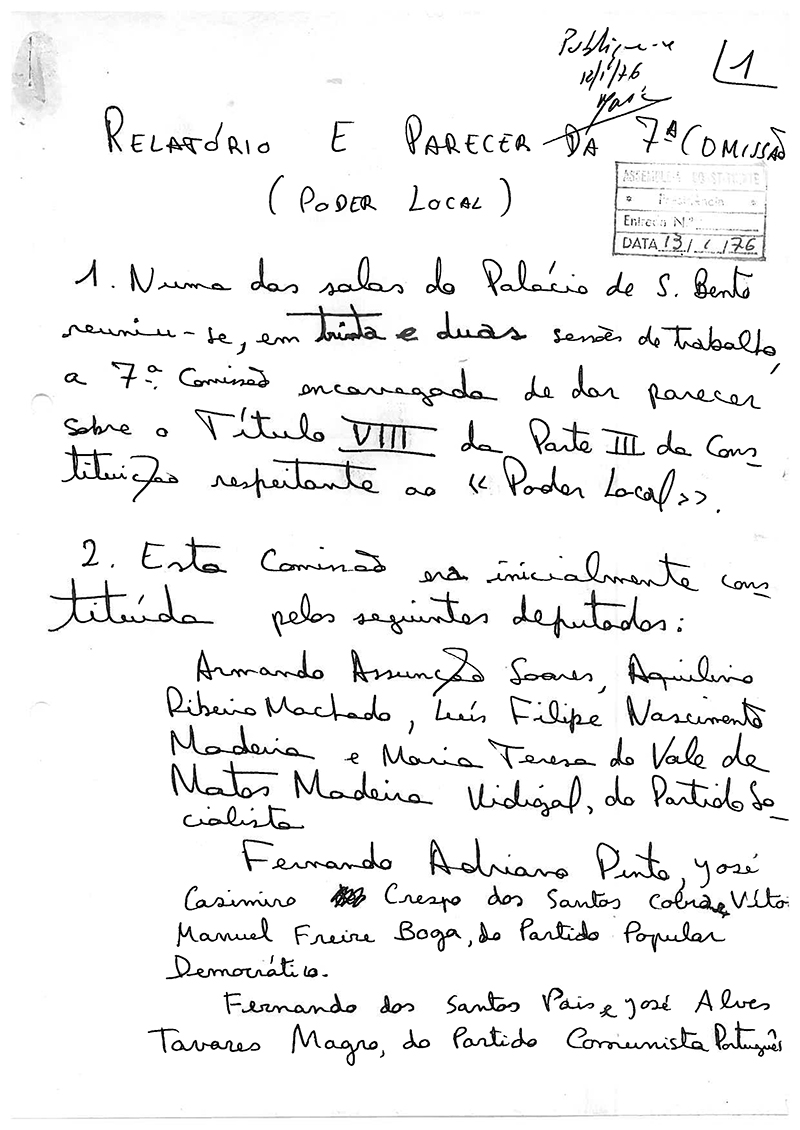 Publique-se
12/1/76
1
RELATÓRIO E PARECER DA 7ª COMISSÃO
(PODER LOCAL)
Presidência
Entrada N.º
DATA 13/1/76
1. Numa das salas do Palácio de S. Bento
reuniu-se, em trinta e duas sessões de trabalho,
a 7ª Comissão encarregada de dar parecer
sobre o Título VIII da Parte III da Cons-
tituição respeitante ao «Poder Local».
2. Esta Comissão era inicialmente cons-
tituída pelos seguintes deputados:
Armando Assunção Soares, Aquilino
Ribeiro Machado, Luís Filipe Nascimento
Madeira e Maria Teresa do Vale de
Matos Madeira Vidigal, do Partido So-
cialista
Fernando Adriano Pinto, José
Casimiro Crespo dos Santos Cobra e Víto
Manuel Freire Boga, do Partido Popular
Democrático.
Fernando dos Santos Pais e José Alves
Tavares Magro, do Partido Comunista Português